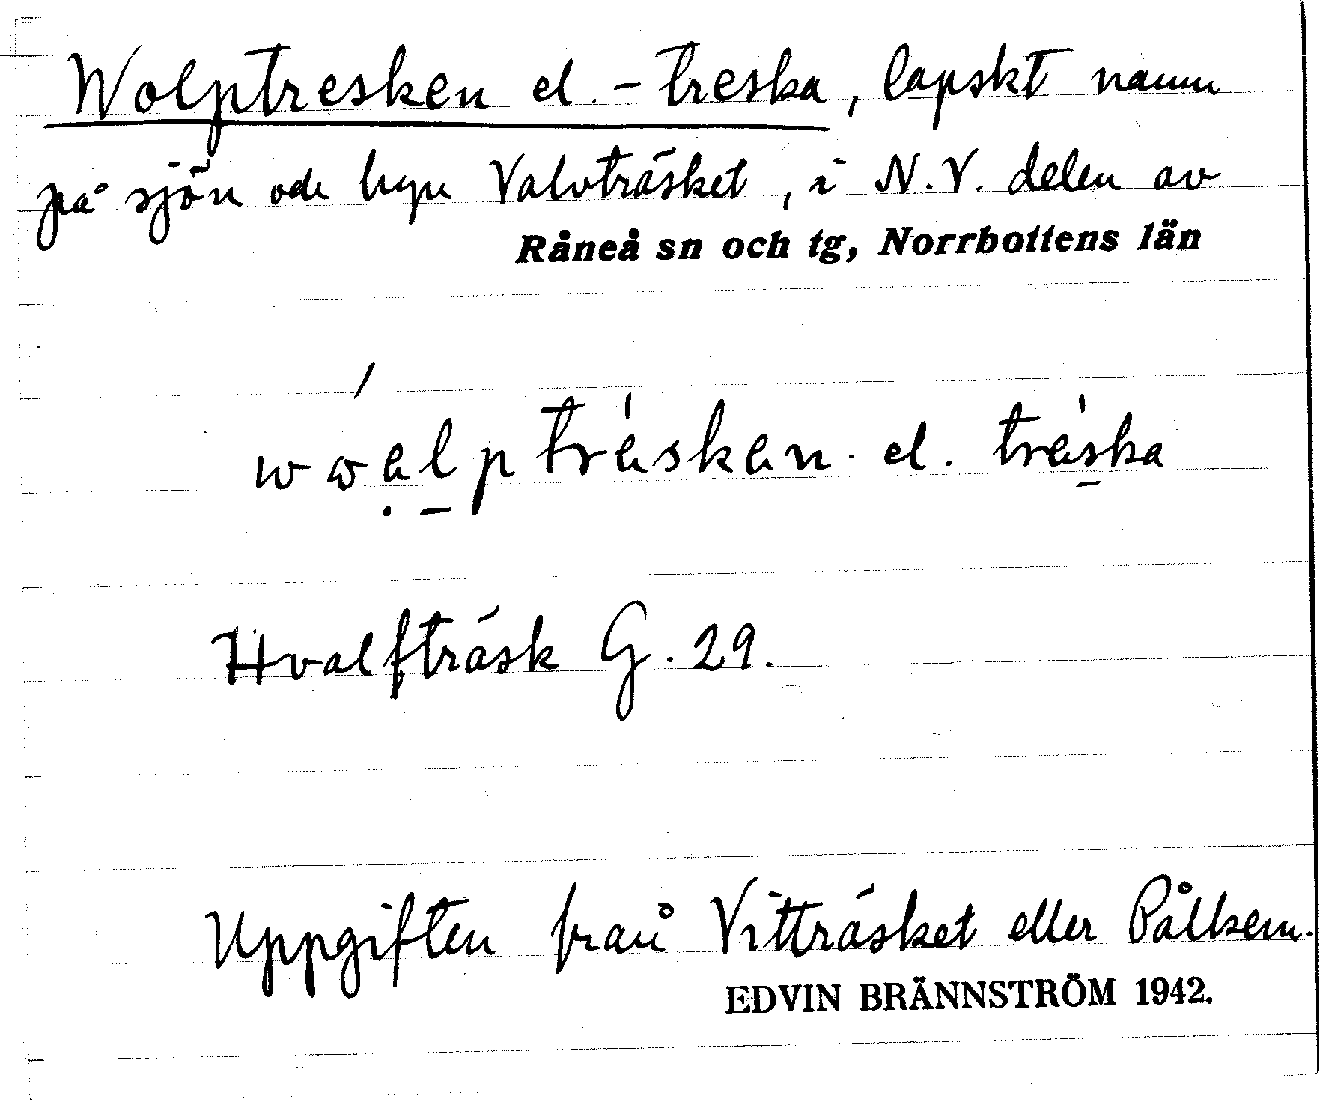 Wolptresken el. - treska, lapskt namn
på sjön och byn Valvträsket, i N.V. delen av
Råneå sn och tg, Norrbottens län
wωạl̲p trèskan. el. très̲ka
Hvalfträsk G. 29.
Uppgiften från Vitträsket eller Pålkem.
EDVIN BRÄNNSTRÖM 1942.